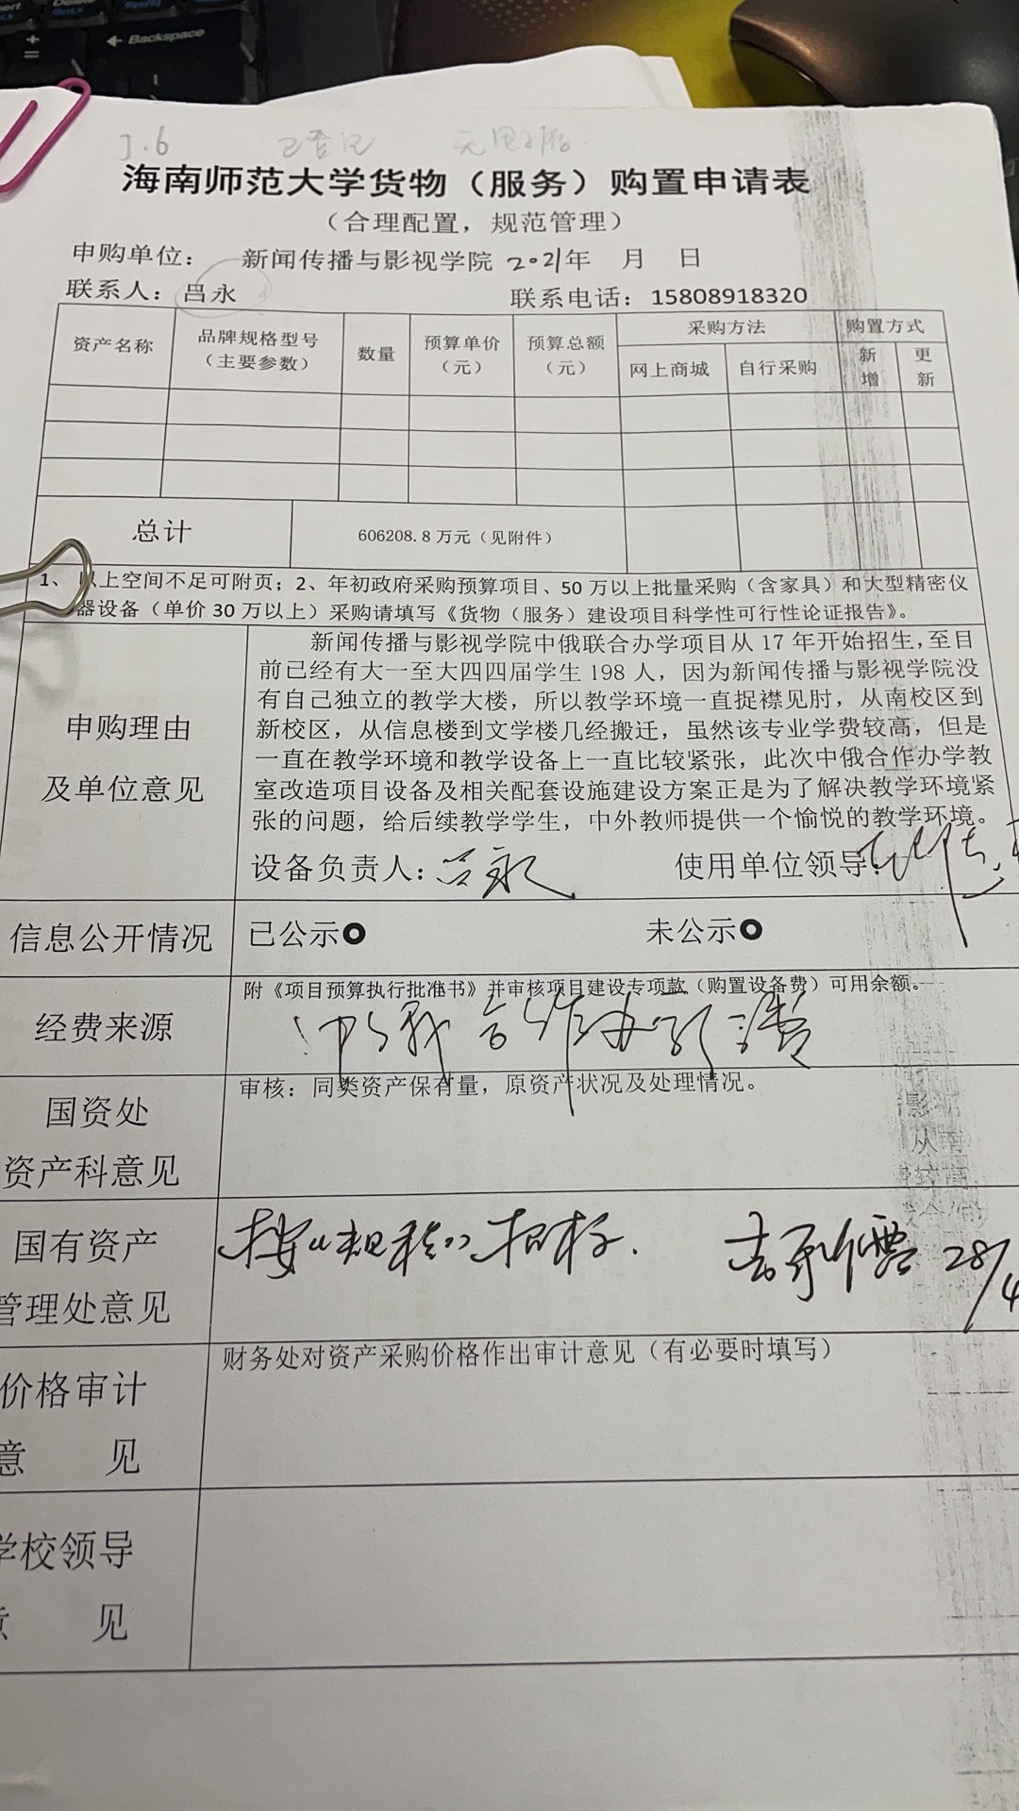 Backspace
J.6 已登记
海南师范大学货物（服务）购置申请表
（合理配置，规范管理）
申购单位： 新闻传播与影视学院 2021年 月 日
联系人：吕永 联系电话：15808918320
资产名称 品牌规格型号（主要参数） 数量 预算单价（元） 预算总额（元） 采购方法 购置方式
网上商城 自行采购 新增 更新
总计 606208.8 万元（见附件）
1、以上空间不足可附页；2、年初政府采购预算项目、50 万以上批量采购（含家具）和大型精密仪
器设备（单价 30 万以上）采购请填写《货物（服务）建设项目科学性可行性论证报告》。
申购理由
及单位意见
新闻传播与影视学院中俄联合办学项目从 17 年开始招生，至目
前已经有大一至大四四届学生 198 人，因为新闻传播与影视学院没
有自己独立的教学大楼，所以教学环境一直捉襟见肘，从南校区到
新校区，从信息楼到文学楼几经搬迁，虽然该专业学费较高，但是
一直在教学环境和教学设备上一直比较紧张，此次中俄合作办学教
室改造项目设备及相关配套设施建设方案正是为了解决教学环境紧
张的问题，给后续教学学生，中外教师提供一个愉悦的教学环境。
设备负责人：吕永 使用单位领导：
信息公开情况 已公示 未公示
附《项目预算执行批准书》并审核项目建设专项款（购置设备费）可用余额。
经费来源 中俄合作办学经费
国资处
资产科意见
审核：同类资产保有量，原资产状况及处理情况。
国有资产
管理处意见
按"规程"招标. 28/4
价格审计
意 见
财务处对资产采购价格作出审计意见（有必要时填写）
学校领导
意 见